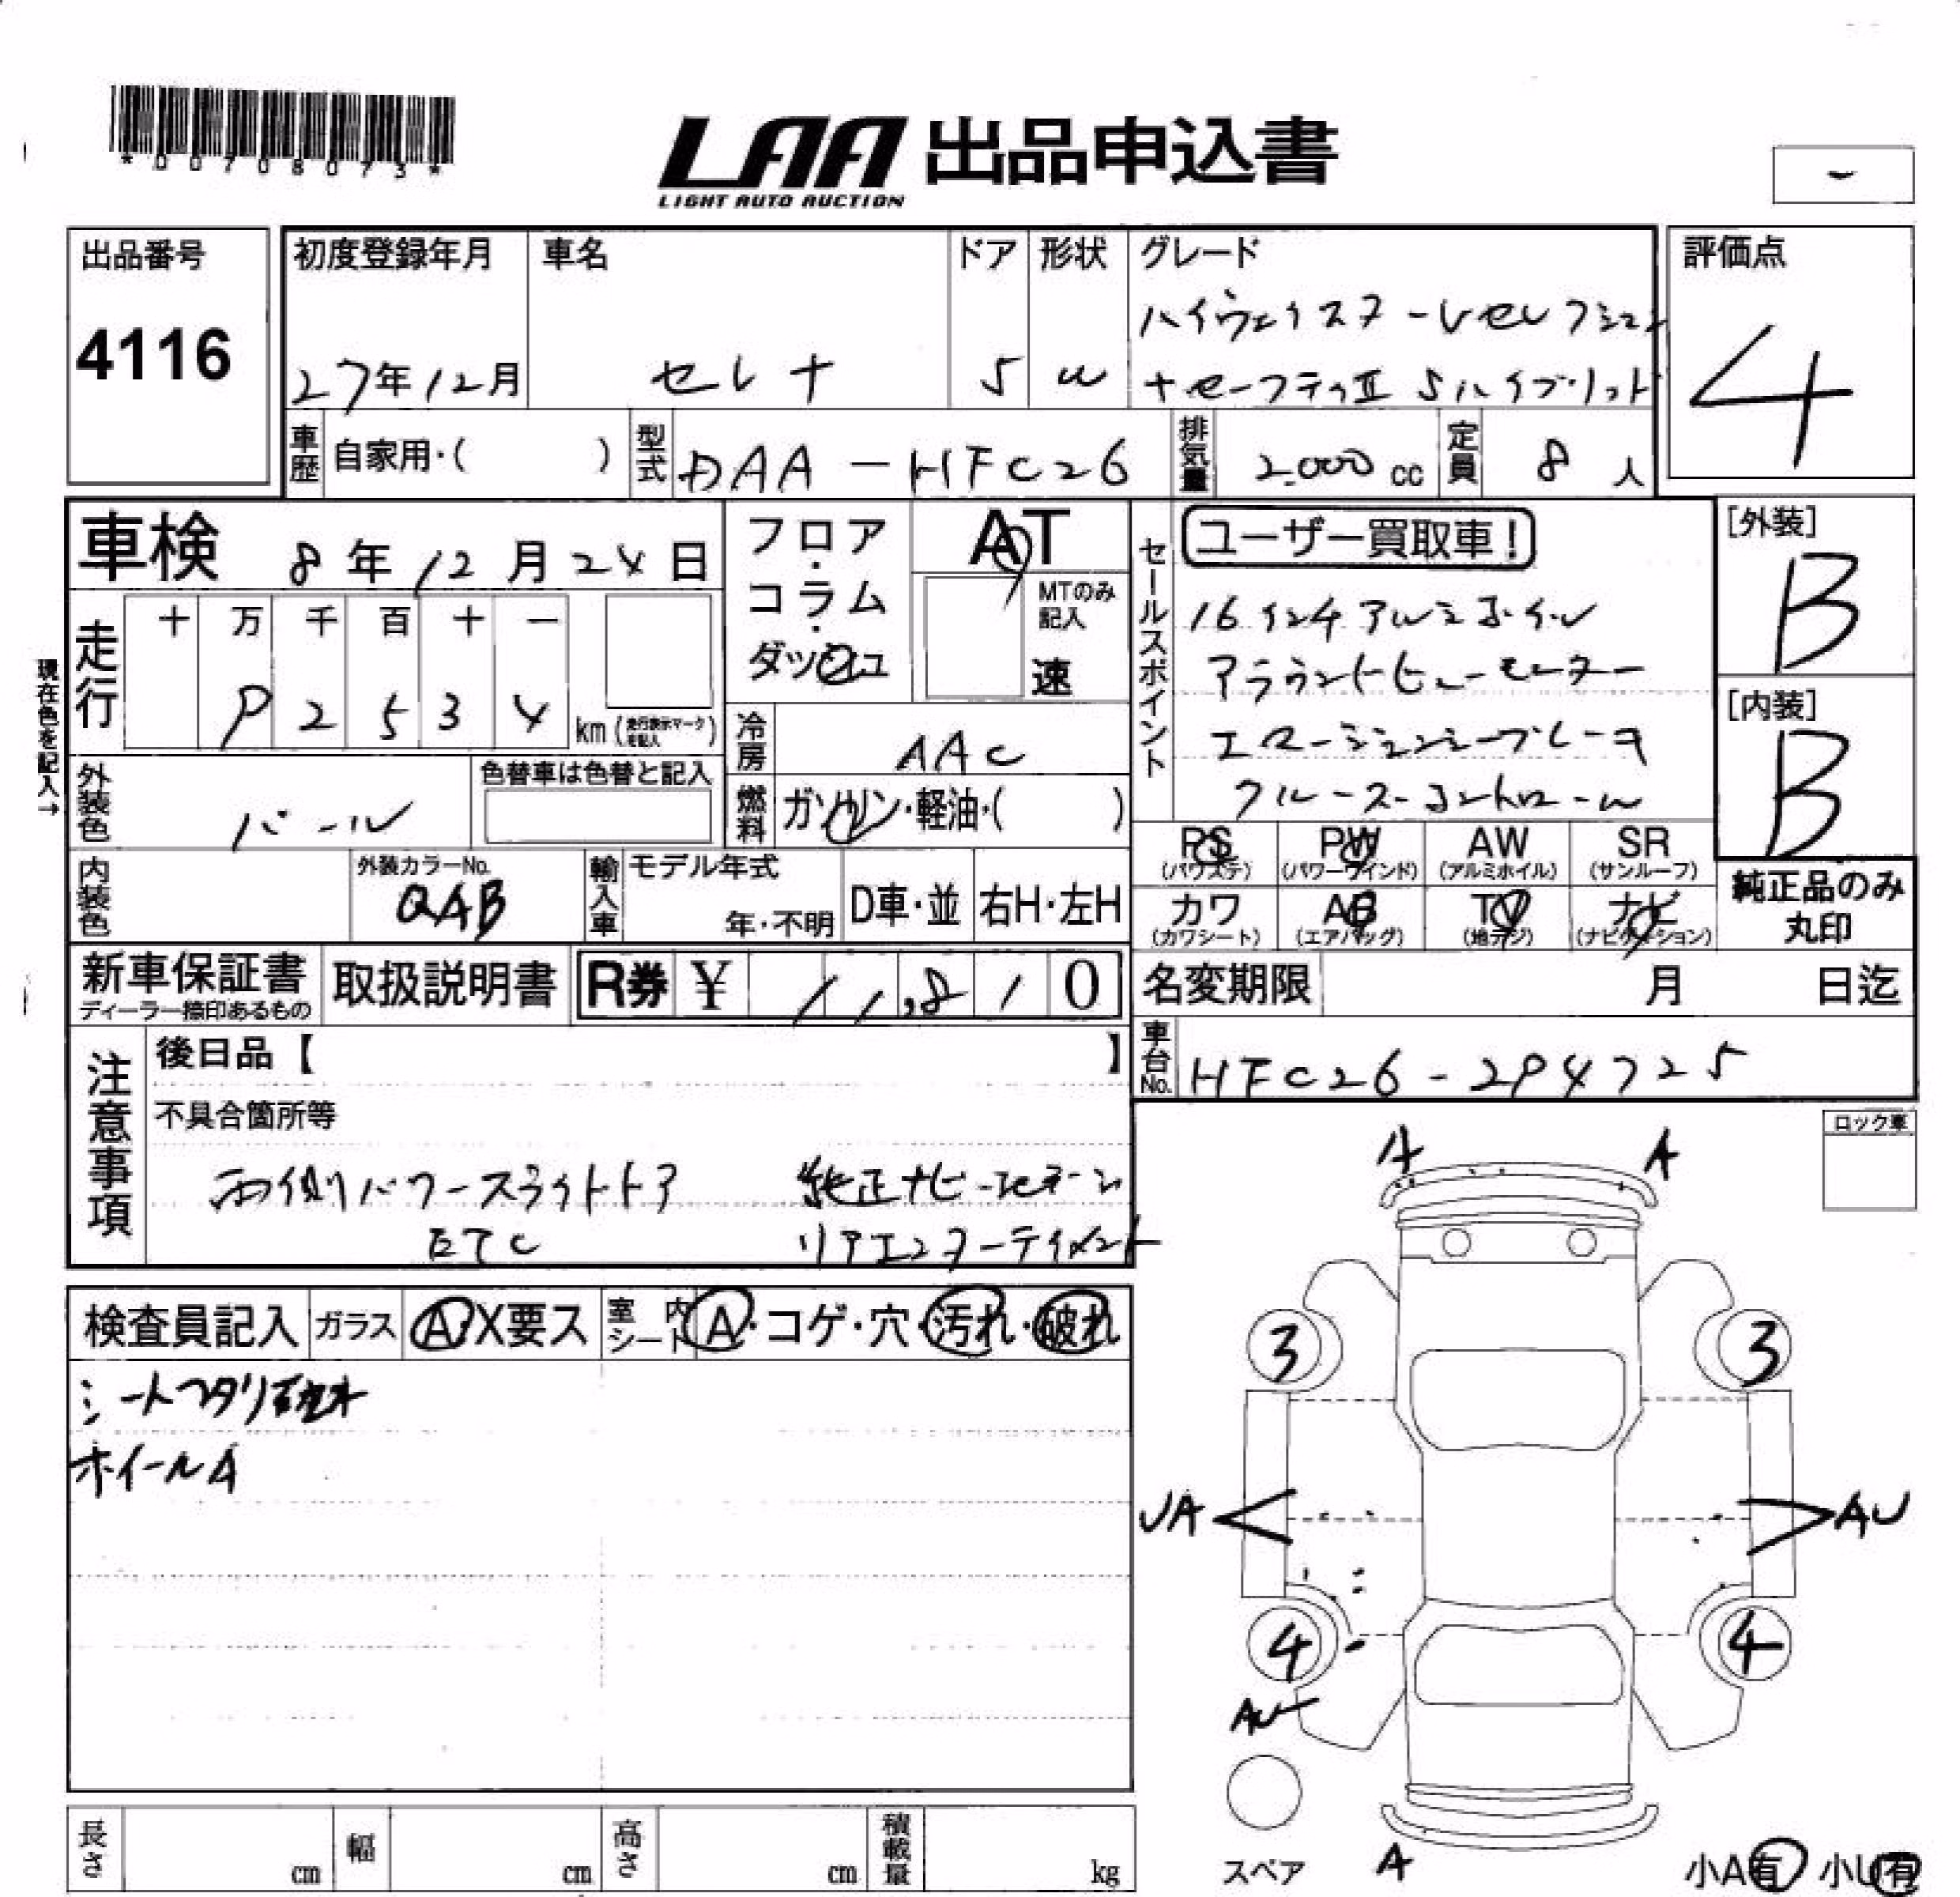 *00708073*
LAA 出品申込書
LIGHT AUTO AUCTION
出品番号
4116
初度登録年月
27年12月
車名
セレナ
ドア
5
形状
W
グレード
ハイウェイスターVセレクション
+セーフティⅡ Sハイブリッド
評価点
4
車歴 自家用・( )
型式 DAA-HFC26
排気量 2.000 cc
定員 8 人
車検 8年12月24日
フロア・コラム・ダッシュ
AT
MTのみ記入
速
セールスポイント
ユーザー買取車!
16インチアルミホイール
アラウンドビューモニター
エマージェンシーブレーキ
クルーズコントロール
[外装]
B
[内装]
B
現在色を記入→
走行
十 万 千 百 十 一
9 2 5 3 4 km (走行表示マークを記入)
冷房 AAC
外装色 パール
色替車は色替と記入
燃料 ガソリン・軽油・( )
内装色
外装カラーNo.
QAB
輸入車
モデル年式
年・不明
D車・並
右H・左H
PS (パワステ)
PW (パワーウィンド)
AW (アルミホイル)
SR (サンルーフ)
カワ (カワシート)
AB (エアバッグ)
TV (地デジ)
ナビ (ナビゲーション)
純正品のみ
丸印
新車保証書
ディーラー捺印あるもの
取扱説明書
R券 ¥ 11,810
名変期限 月 日迄
車台No. HFC26-294725
注意事項
後日品【 】
不具合箇所等
両側パワースライドドア 純正ナビ
ETC リアエンターテイメント
ロック車
検査員記入
ガラス A・X要ス
室内シート A・コゲ・穴・汚れ・破れ
シートヘタリ
ホイールA
A A
3 3
UA AU
4 4
AU
スペア
A
小A有 小U有
長さ cm
幅 cm
高さ cm
積載量 kg